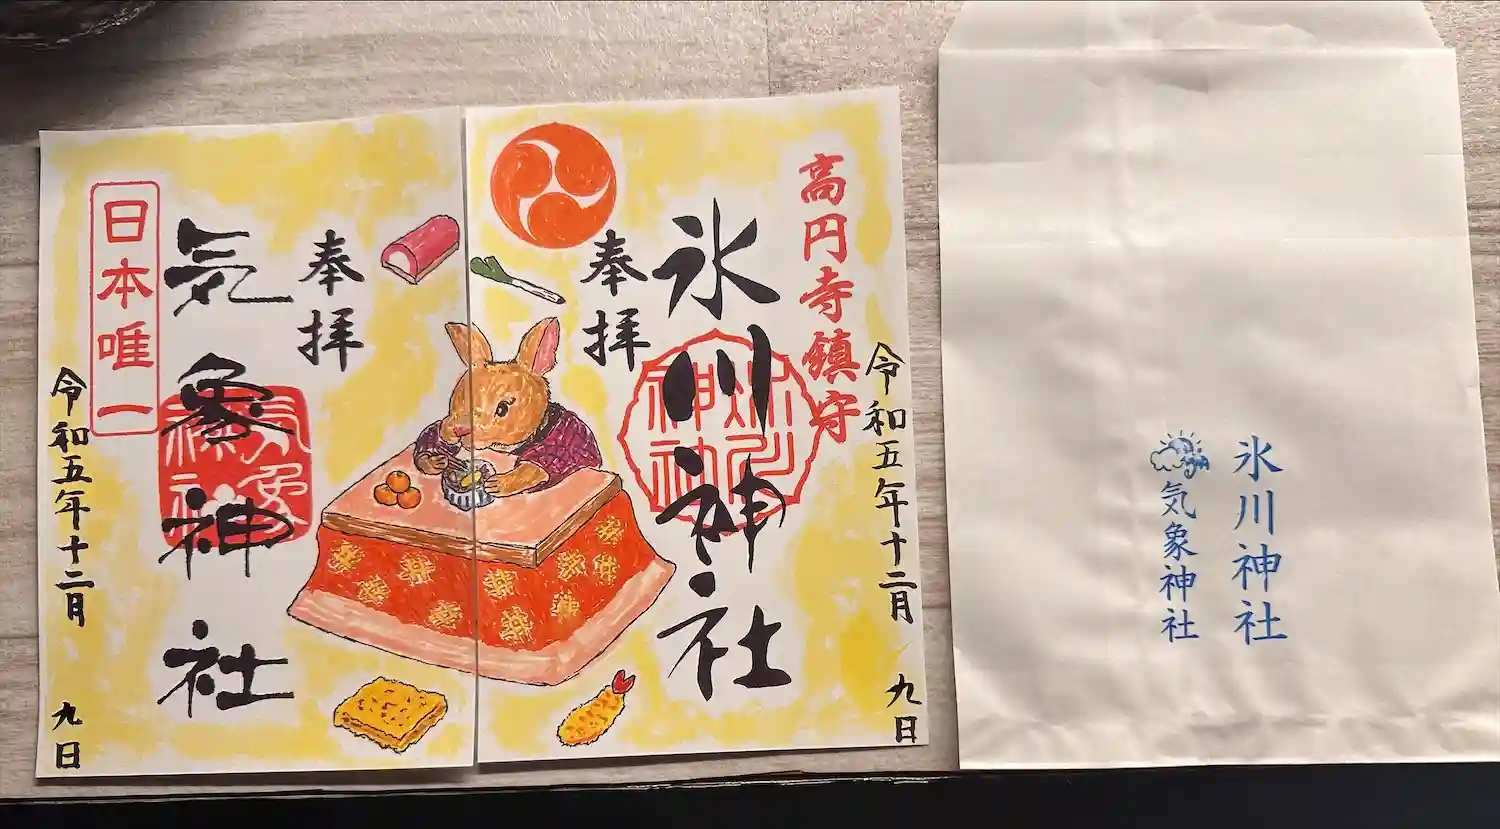 高円寺鎮守
令和五年十二月 九日
氷川神社
氷川神社
奉拝
奉拝
気象神社
気象神社
日本唯一
令和五年十二月 九日
氷川神社
気象神社